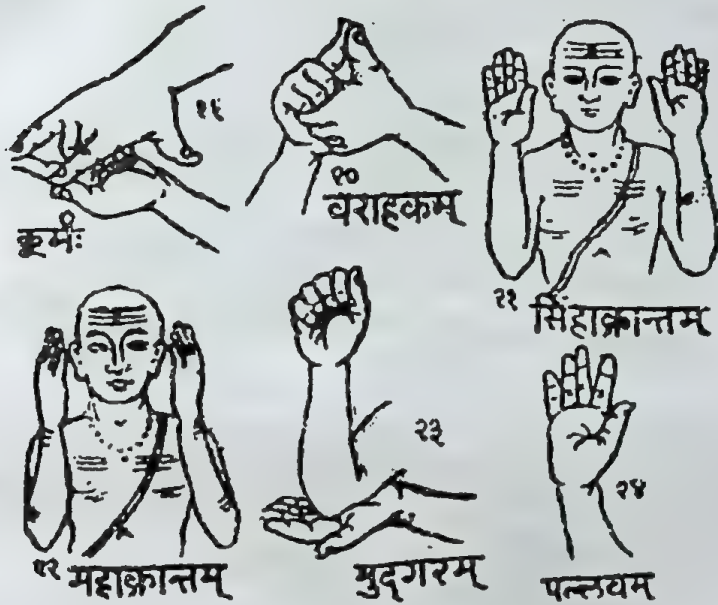 १९
कूर्मः
२०
वराहकम्
२१
सिंहाक्रान्तम्
२२
महाक्रान्तम्
२३
मुद्गरम्
२४
पल्लवम्